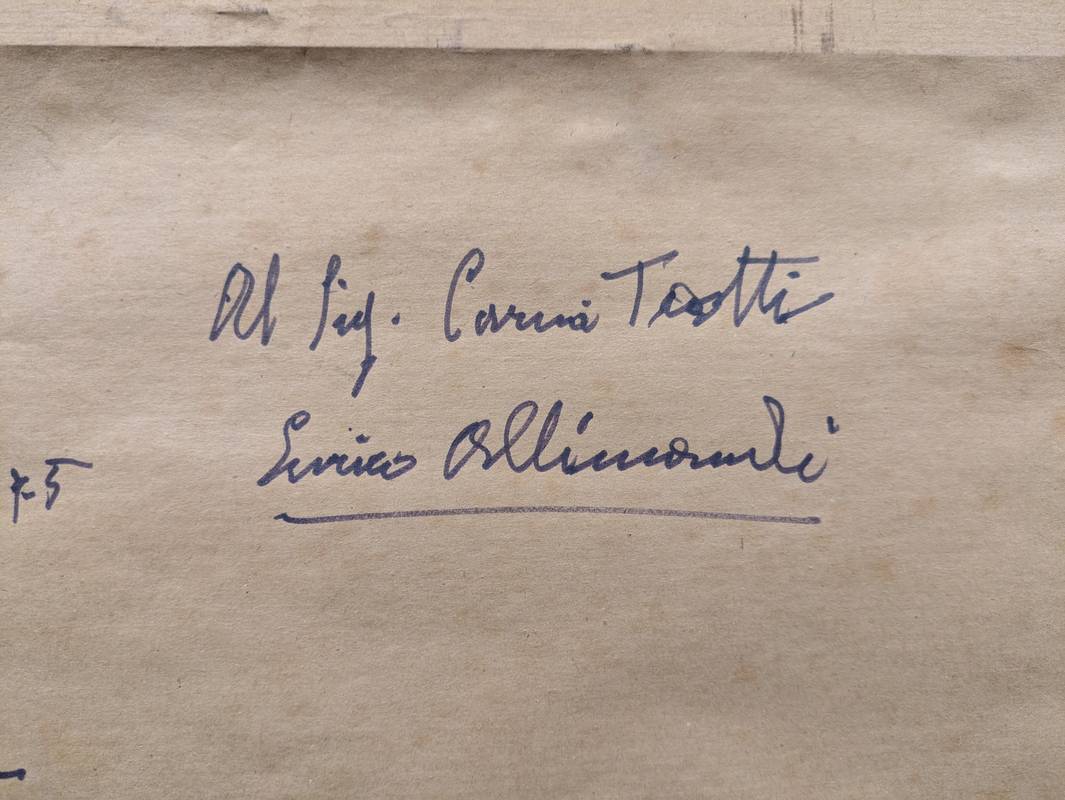 Al Sig. Carma Teotti
Enrico Allimandi
7-5